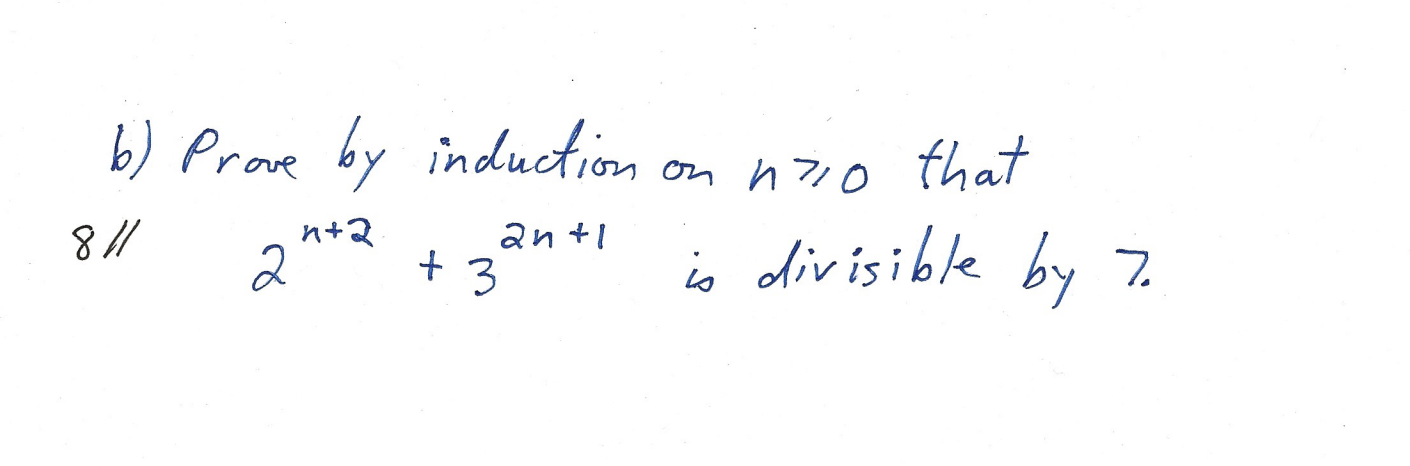 b) Prove by induction on n ≥ 0 that
8 // 2^{n+2} + 3^{2n+1} is divisible by 7.